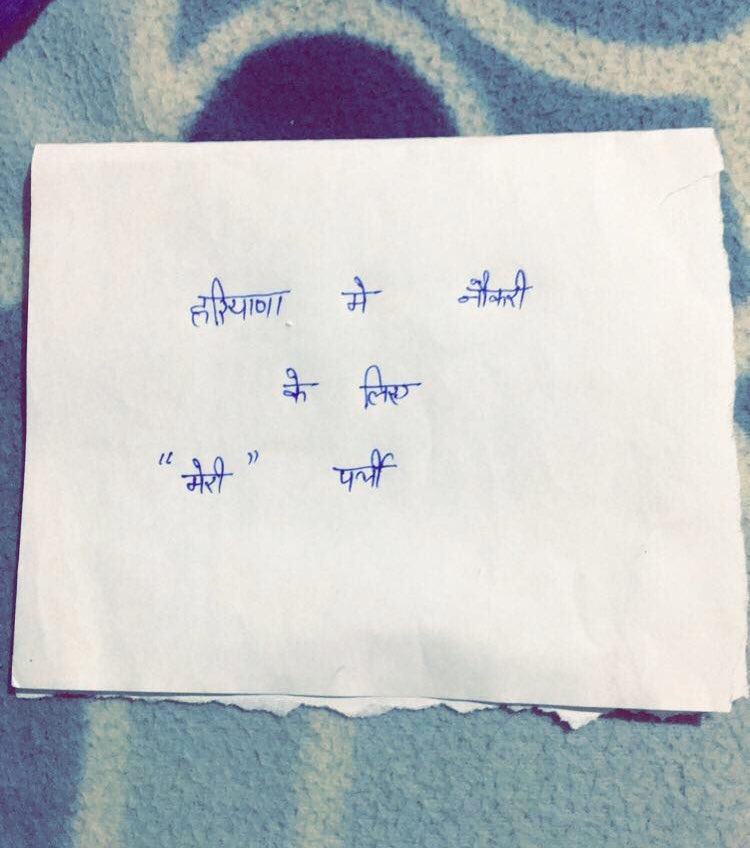 हरियाणा मे नौकरी
के लिए
“मेरी” पर्ची